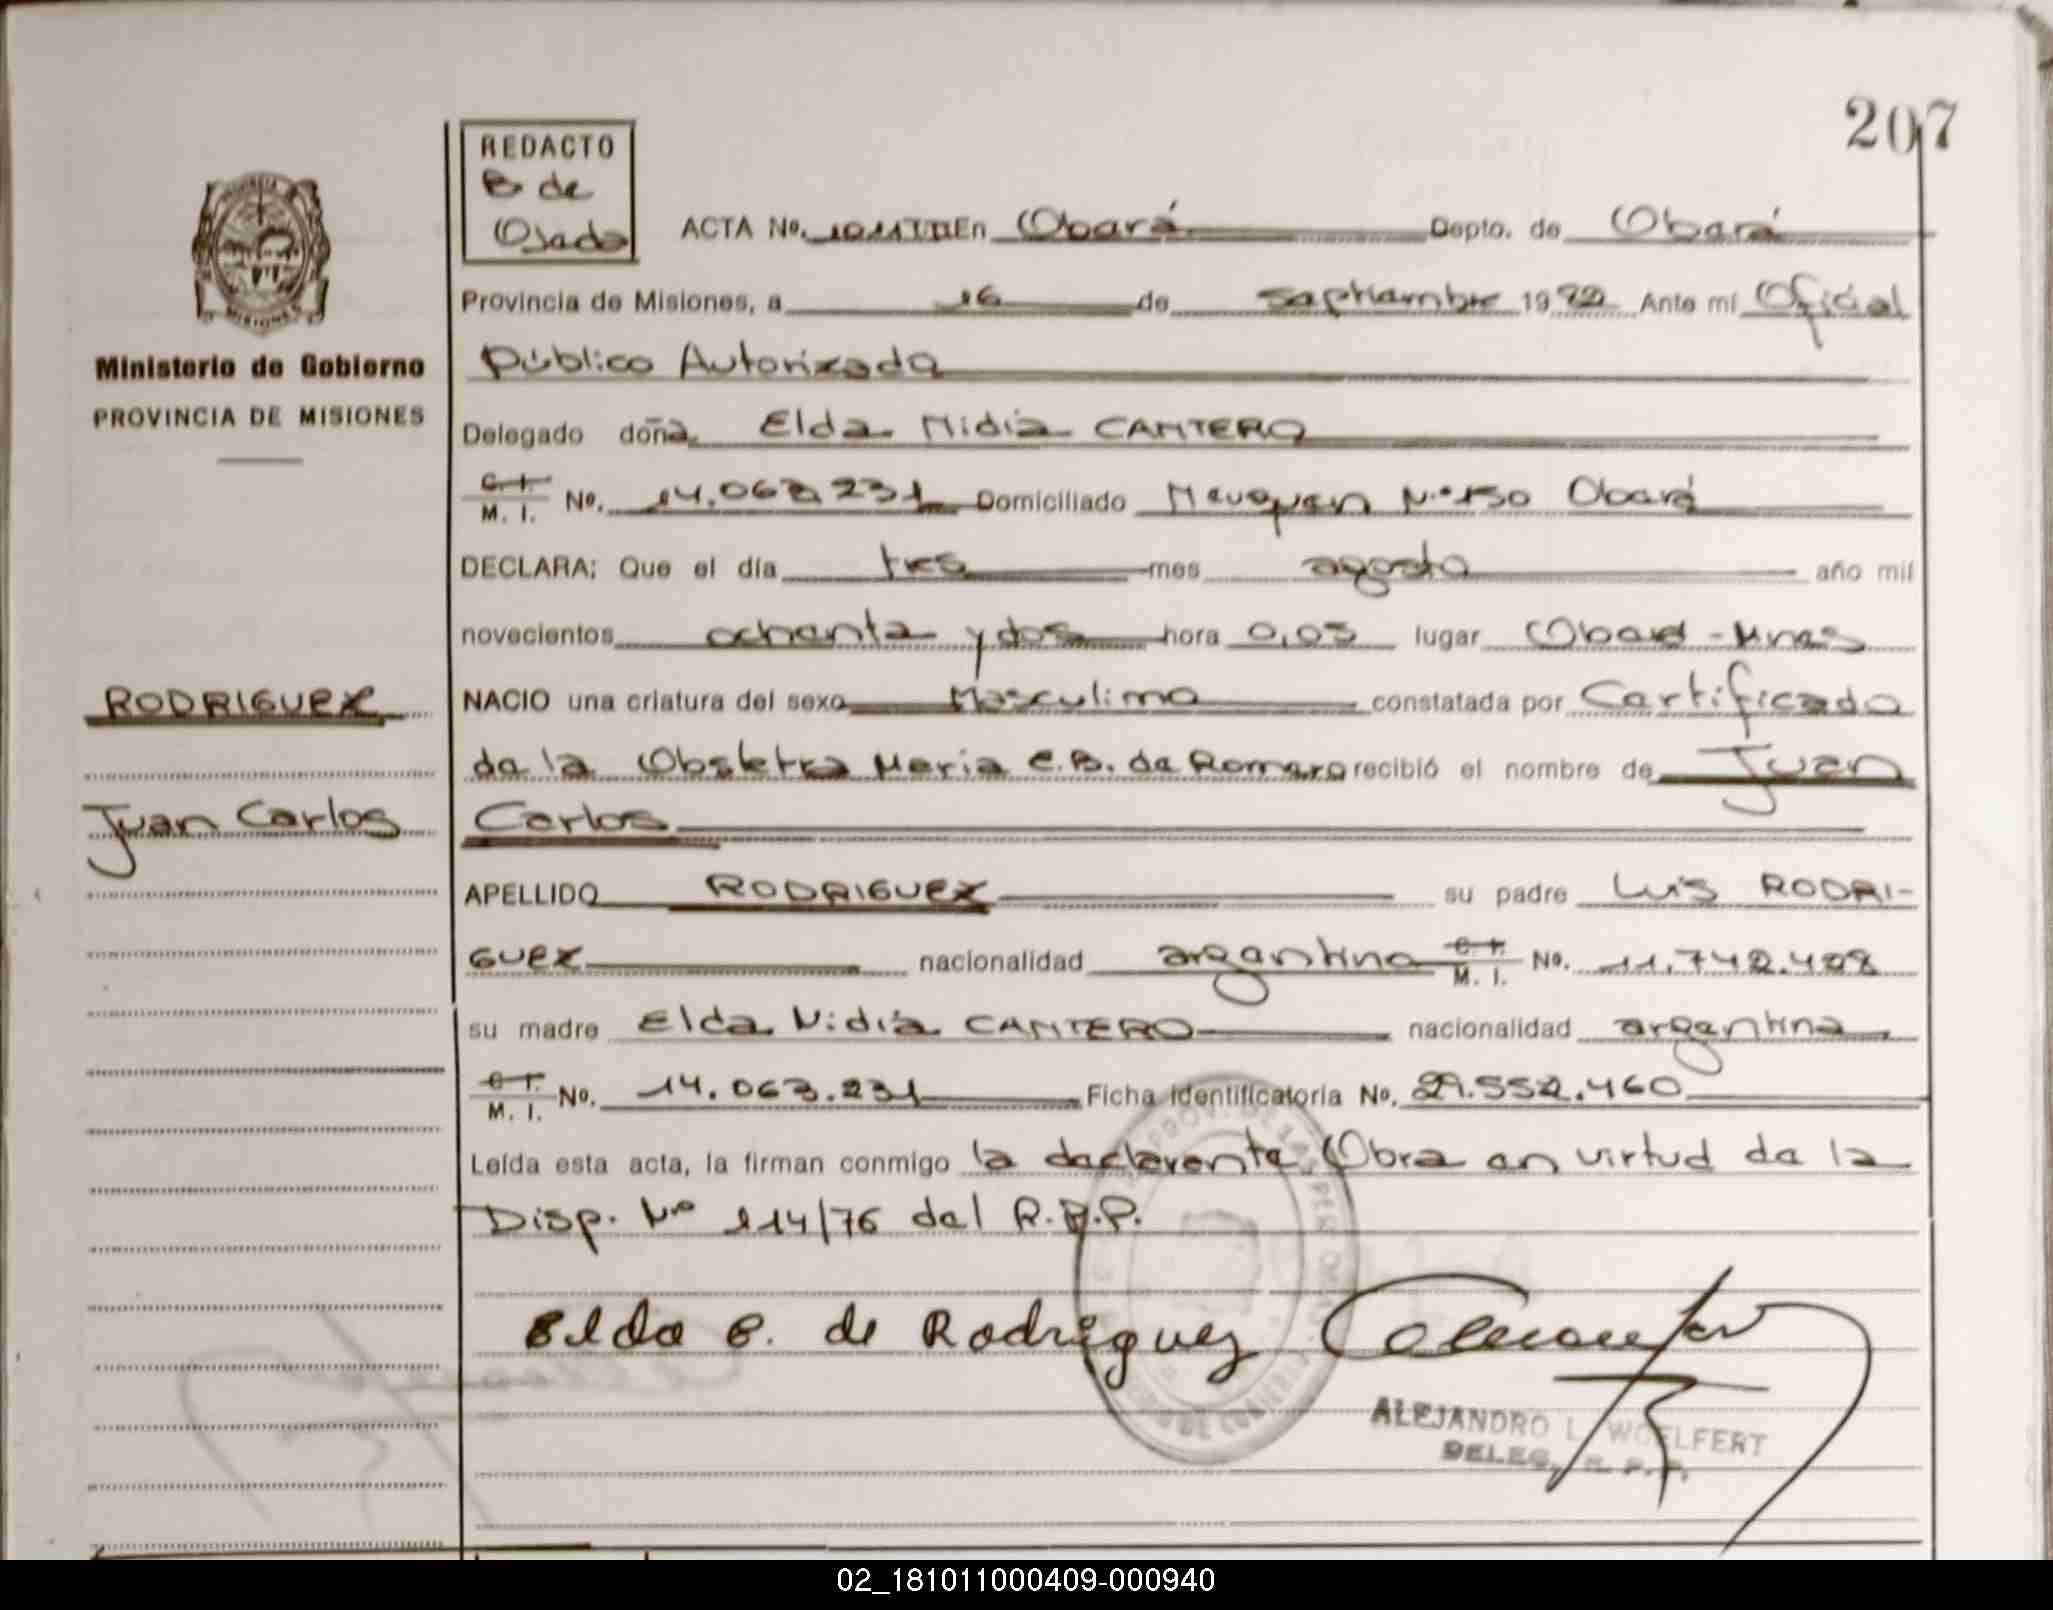 207
REDACTO
B de
Ojeda
ACTA No. En Oberá Depto. de Oberá
Provincia de Misiones, a 16 de septiembre 19 Ante mí Oficial
Público Autorizado
Delegado doña Elda Nidia CANTERO
C. I. M. I. No. 14.063.231 Domiciliado Neuquen N° 150 Oberá
DECLARA: Que el día tres mes agosto año mil
novecientos ochenta y dos hora 0,05 lugar Oberá - Mnes
NACIO una criatura del sexo Masculino constatada por Certificado
de la Obstetra Maria C.B. de Romero recibió el nombre de Juan
Carlos
APELLIDO RODRIGUEZ su padre Luis RODRI-
GUEZ nacionalidad argentina C. I. M. I. No. 11.742.408
su madre Elda Nidia CANTERO nacionalidad argentina
C. I. M. I. No. 14.063.231 Ficha identificatoria No. 29.552.460
Leída esta acta, la firman conmigo la declarante. Obra en virtud de la
Disp. N° 114/76 del R.P.P.
Elda C. de Rodriguez
ALEJANDRO L. WOELFERT
DELEG. R. P. P.
Ministerio de Gobierno
PROVINCIA DE MISIONES
RODRIGUEZ
Juan Carlos
02_181011000409-000940